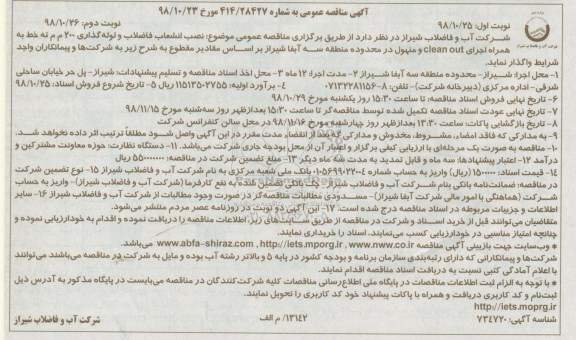 آگهی مناقصه عمومی به شماره ۴۱۴/۲۸۴۲۷ مورخ ۹۸/۱۰/۲۳
نوبت اول: ۹۸/۱۰/۲۵
نوبت دوم: ۹۸/۱۰/۲۶
شرکت آب و فاضلاب شیراز در نظر دارد از طریق برگزاری مناقصه عمومی موضوع: نصب انشعاب فاضلاب و لوله‌گذاری ۲۰۰ م م ته خط به
همراه اجرای clean out و منهول در محدوده منطقه سه آبفا شیراز بر اساس مقادیر مقطوع به شرح زیر به شرکت‌ها و پیمانکاران واجد
شرایط واگذار نماید.
۱- محل اجرا: شیراز- محدوده منطقه سه آبفا شیراز ۲- مدت اجرا: ۱۲ ماه ۳- محل اخذ اسناد مناقصه و تسلیم پیشنهادات: شیراز- پل حر خیابان ساحلی
شرقی- اداره مرکزی (دبیرخانه شرکت)- تلفن: ۸-۰۷۱۳۲۲۸۱۱۵۶ ۴- برآورد اولیه: ۱۱۵۱۳۵۰۲۷۵۵ ریال ۵- تاریخ شروع فروش اسناد: ۹۸/۱۰/۲۵
۶- تاریخ نهایی فروش اسناد مناقصه: تا ساعت ۱۵:۳۰ روز یکشنبه مورخ ۹۸/۱۰/۲۹
۷- تاریخ نهایی عودت اسناد مناقصه تکمیل شده توسط مناقصه‌گر تا ساعت ۱۵:۳۰ بعدازظهر روز سه‌شنبه مورخ ۹۸/۱۱/۱۵
۸- تاریخ بازگشایی پاکات: ساعت ۱۳:۳۰ بعدازظهر روز چهارشنبه مورخ ۹۸/۱۱/۱۶ در محل سالن کنفرانس شرکت
۹- به مدارکی که فاقد امضاء، مشروط، مخدوش و مدارکی که بعد از انقضاء مدت مقرر در این آگهی واصل شود مطلقاً ترتیب اثر داده نخواهد شد.
۱۰- مناقصه به صورت یک مرحله‌ای با ارزیابی کیفی برگزار و اعتبار آن از محل بودجه جاری شرکت می‌باشد. ۱۱- دستگاه نظارت: حوزه معاونت مشترکین و
درآمد ۱۲- اعتبار پیشنهادها: سه ماه و قابل تمدید به مدت سه ماه دیگر ۱۳- مبلغ تضمین شرکت در مناقصه: ریال
۱۴- قیمت اسناد: ۱۵۰۰۰۰۰ (ریال) واریز به حساب شماره بانک ملی شعبه مرکزی به نام شرکت آب و فاضلاب شیراز ۱۵- نوع تضمین شرکت
در مناقصه: ضمانت‌نامه بانکی بنام شرکت آب و فاضلاب شیراز- چک بانکی تضمین شده به نفع کارفرما (شرکت آب و فاضلاب شیراز)- واریز به حساب
شرکت (هماهنگی با امور مالی شرکت آبفا شیراز)- مسدودی مطالبات مناقصه‌گر در صورت وجود مطالبات از شرکت آب و فاضلاب شیراز ۱۶- سایر
اطلاعات و جزییات مربوطه در اسناد مناقصه درج شده است. ۱۷- این آگهی دو نوبت در روزنامه عصر مردم منتشر می‌شود.
متقاضیان می‌توانند قبل از خرید اسناد و شرکت در مناقصه از طریق سایت‌های زیر اطلاعات مناقصه را دریافت نموده و اقدام به خودارزیابی نموده و
چنانچه امتیاز مناسبی در خودارزیابی کسب می‌نمایند، اسناد را خریداری نمایند.
* وب‌سایت جهت بازبینی آگهی مناقصه www.abfa-shiraz.com ,http://iets.mporg.ir , www.nww.co.ir می‌باشد.
شرکت‌ها و پیمانکارانی که دارای رتبه‌بندی سازمان برنامه و بودجه کشور در پایه ۵ و بالاتر رشته آب بوده و مایل به شرکت در مناقصه می‌باشند می‌توانند
با اعلام آمادگی کتبی نسبت به دریافت اسناد مناقصه اقدام نمایند.
* با توجه به الزام ثبت اطلاعات مناقصات در پایگاه ملی اطلاع‌رسانی مناقصات کلیه شرکت‌کنندگان در مناقصه می‌بایست در پایگاه مذکور به آدرس ذیل
ثبت‌نام و کد کاربری دریافت و همراه با پاکات پیشنهاد خود کد کاربری را تحویل نمایند.
http://iets.mporg.ir
شناسه آگهی: ۷۳۴۷۲۰
۱۳۶۴۲/ م الف
شرکت آب و فاضلاب شیراز